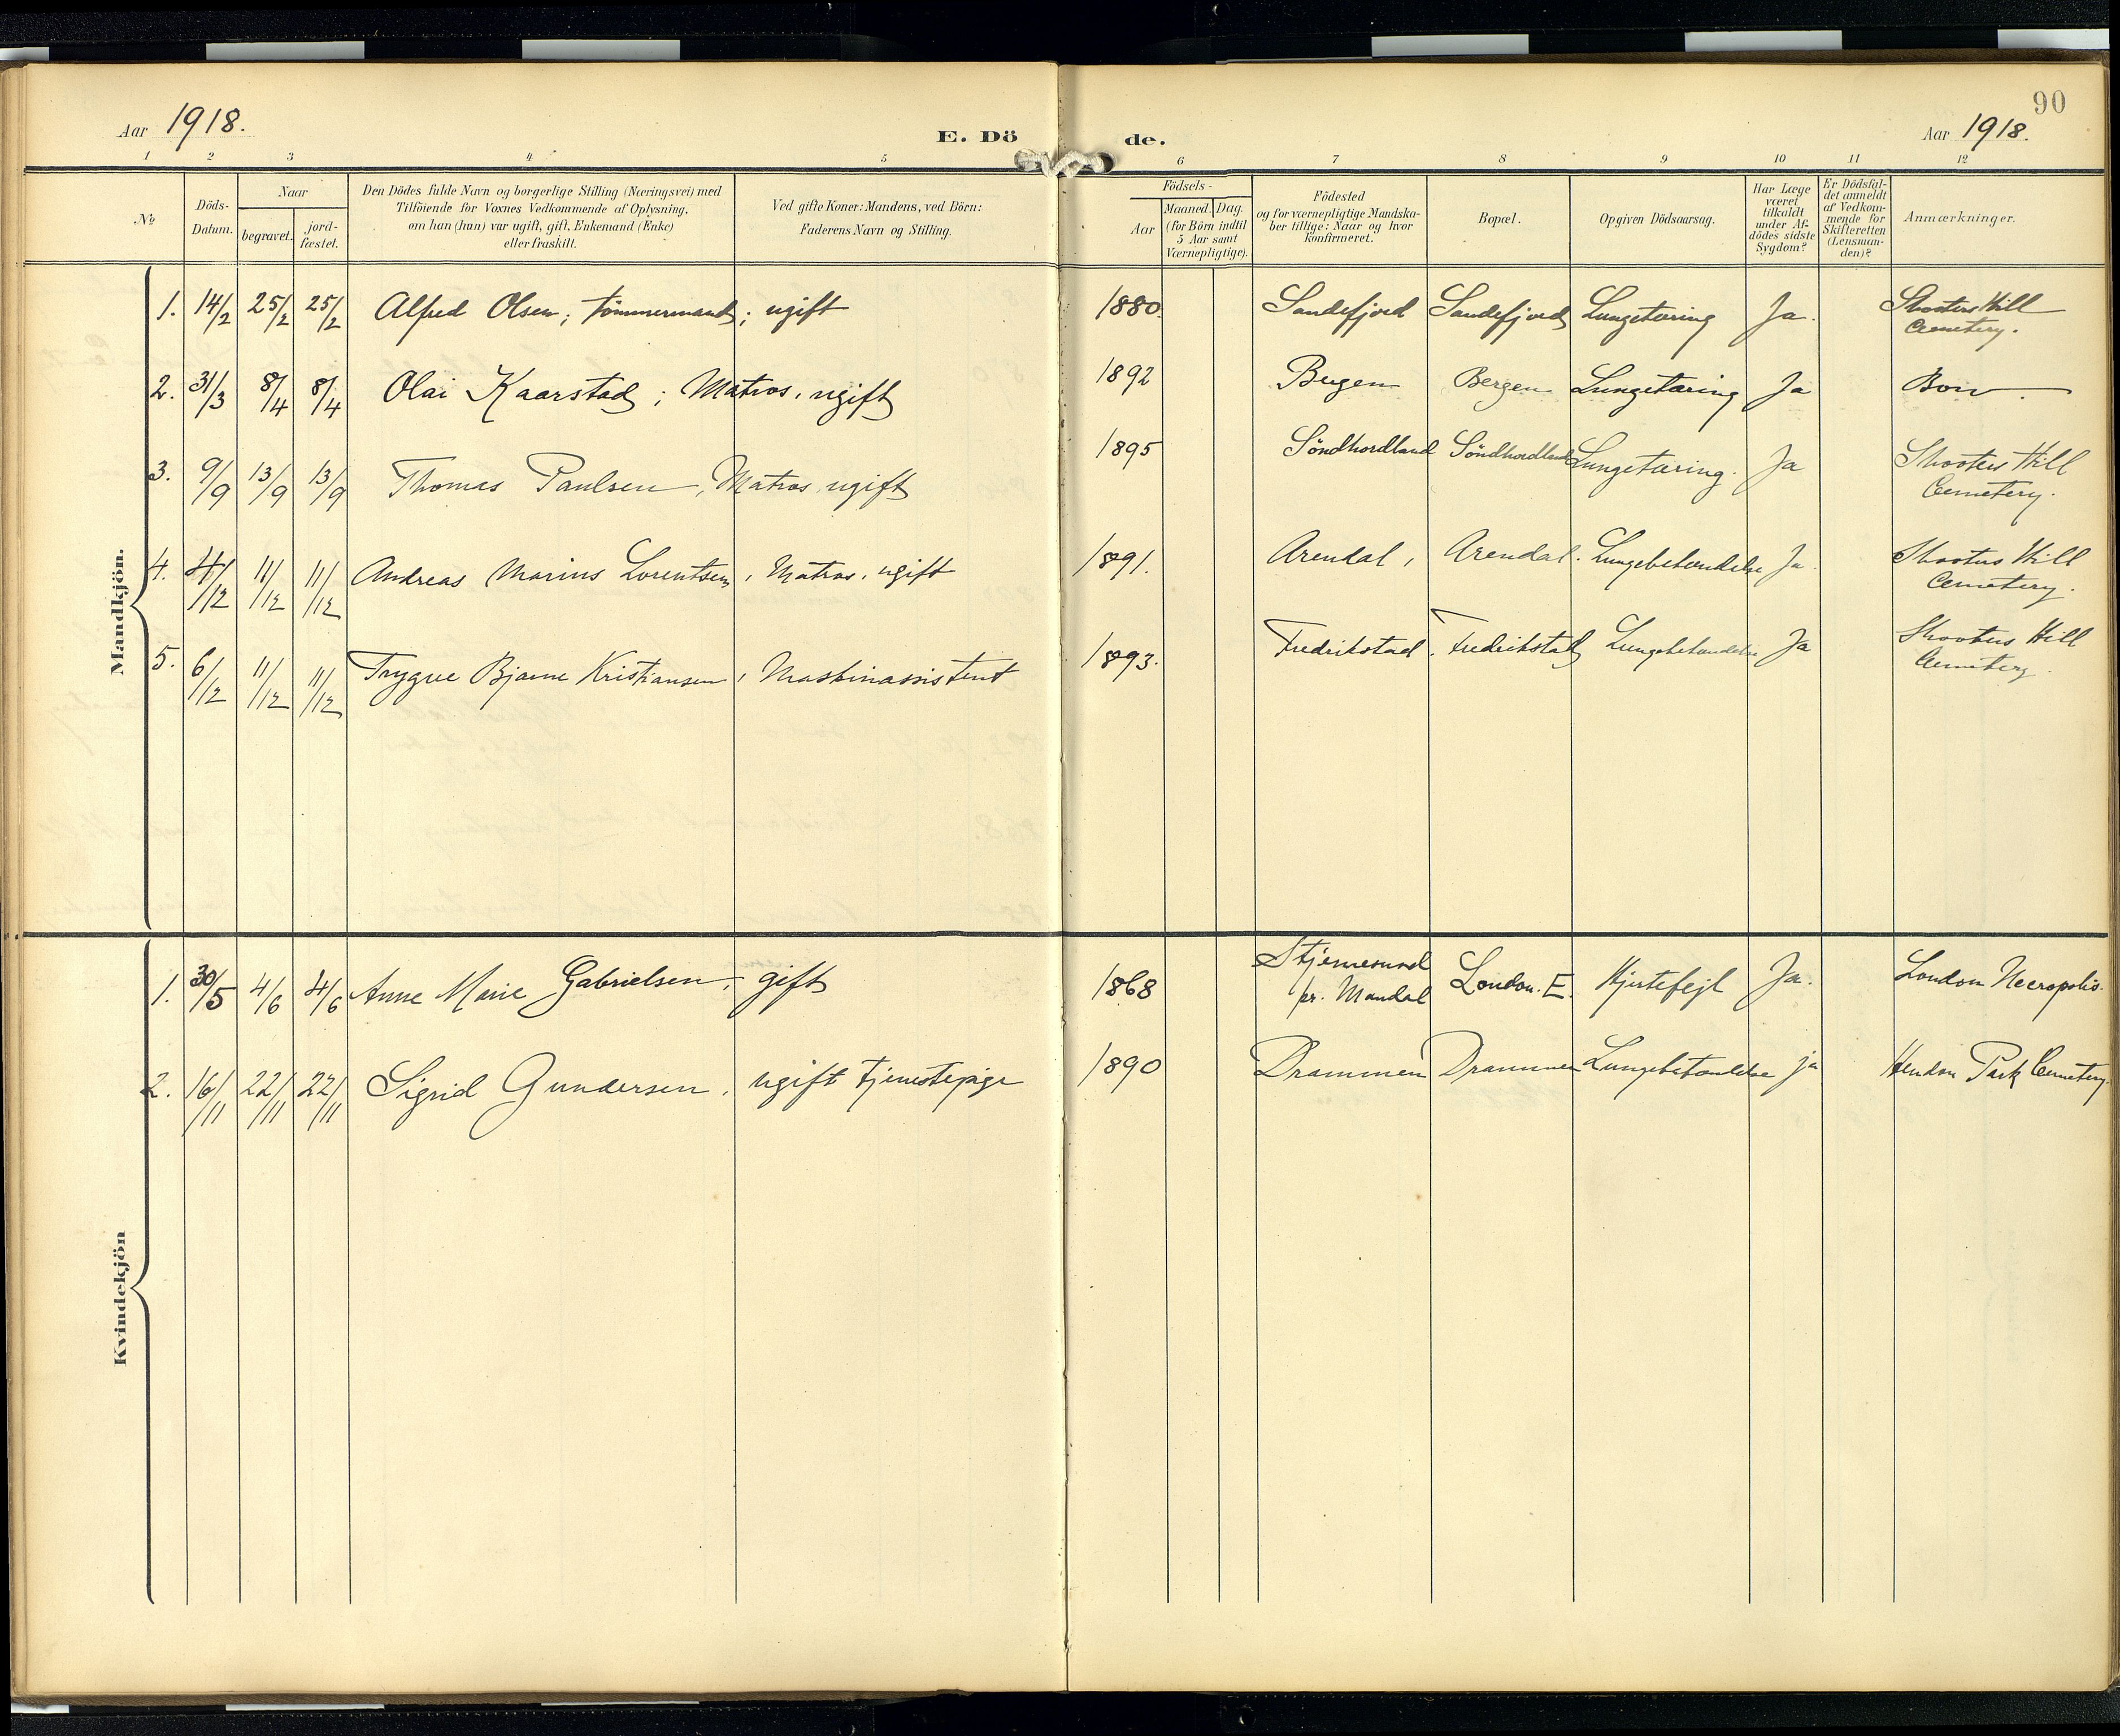 90
Aar 1918.
E. Dö
de.
Aar 1918.
1 2 3 4 5 6 7 8 9 10 11 12
No
Döds-
Datum.
Naar
begravet.
jord-
fæstet.
Den Dödes fulde Navn og borgerlige Stilling (Næringsvei) med
Tilföiende for Voxnes Vedkommende af Oplysning,
om han (hun) var ugift, gift, Enkemand (Enke)
eller fraskilt.
Ved gifte Koner: Mandens, ved Börn:
Faderens Navn og Stilling.
Födsels-
Aar
Maaned. Dag.
(for Börn indtil
5 Aar samt
Værnepligtige).
Födested
og for værnepligtige Mandska-
ber tillige: Naar og hvor
konfirmeret.
Bopæl.
Opgiven Dödsaarsag.
Har Læge
været
tilkaldt
under Af-
dödes sidste
Sygdom?
Er Dödsfal-
det anmeldt
af Vedkom-
mende for
Skifteretten
(Lensman-
den)?
Anmærkninger.
Mandkjön.
1. 14/2 25/2 25/2 Alfred Olsen; tömmermand; ugift 1880. Sandefjord Sandefjord Lungetæring Ja. Shooters Hill
Cemetery.
2. 31/3 8/4 8/4 Olai Kaarstad; Matros, ugift 1892 Bergen Bergen Lungetæring Ja Bow.
3. 9/9 13/9 13/9 Thomas Paulsen, Matros, ugift 1895 Söndhordland Söndhordland Lungetæring. Ja Shooters Hill
Cemetery.
4. 4/12 11/12 11/12 Andreas Marius Lorentsen, Matros, ugift 1891. Arendal, Arendal. Lungebetændelse Ja. Shooters Hill
Cemetery.
5. 6/12 11/12 11/12 Trygve Bjarne Kristiansen, Maskinassistent 1893. Fredrikstad. Fredrikstad Lungebetændelse Ja Shooters Hill
Cemetery.
Kvindekjön
1. 30/5 4/6 4/6 Anne Marie Gabrielsen, gift 1868 pr. Mandal London. E. Hjertefejl Ja. London Necropolis.
2. 16/11 22/11 22/11 Sigrid Gundersen, ugift tjenestepige 1890 Drammen Drammen Lungebetændelse ja Hendon Park Cemetery.